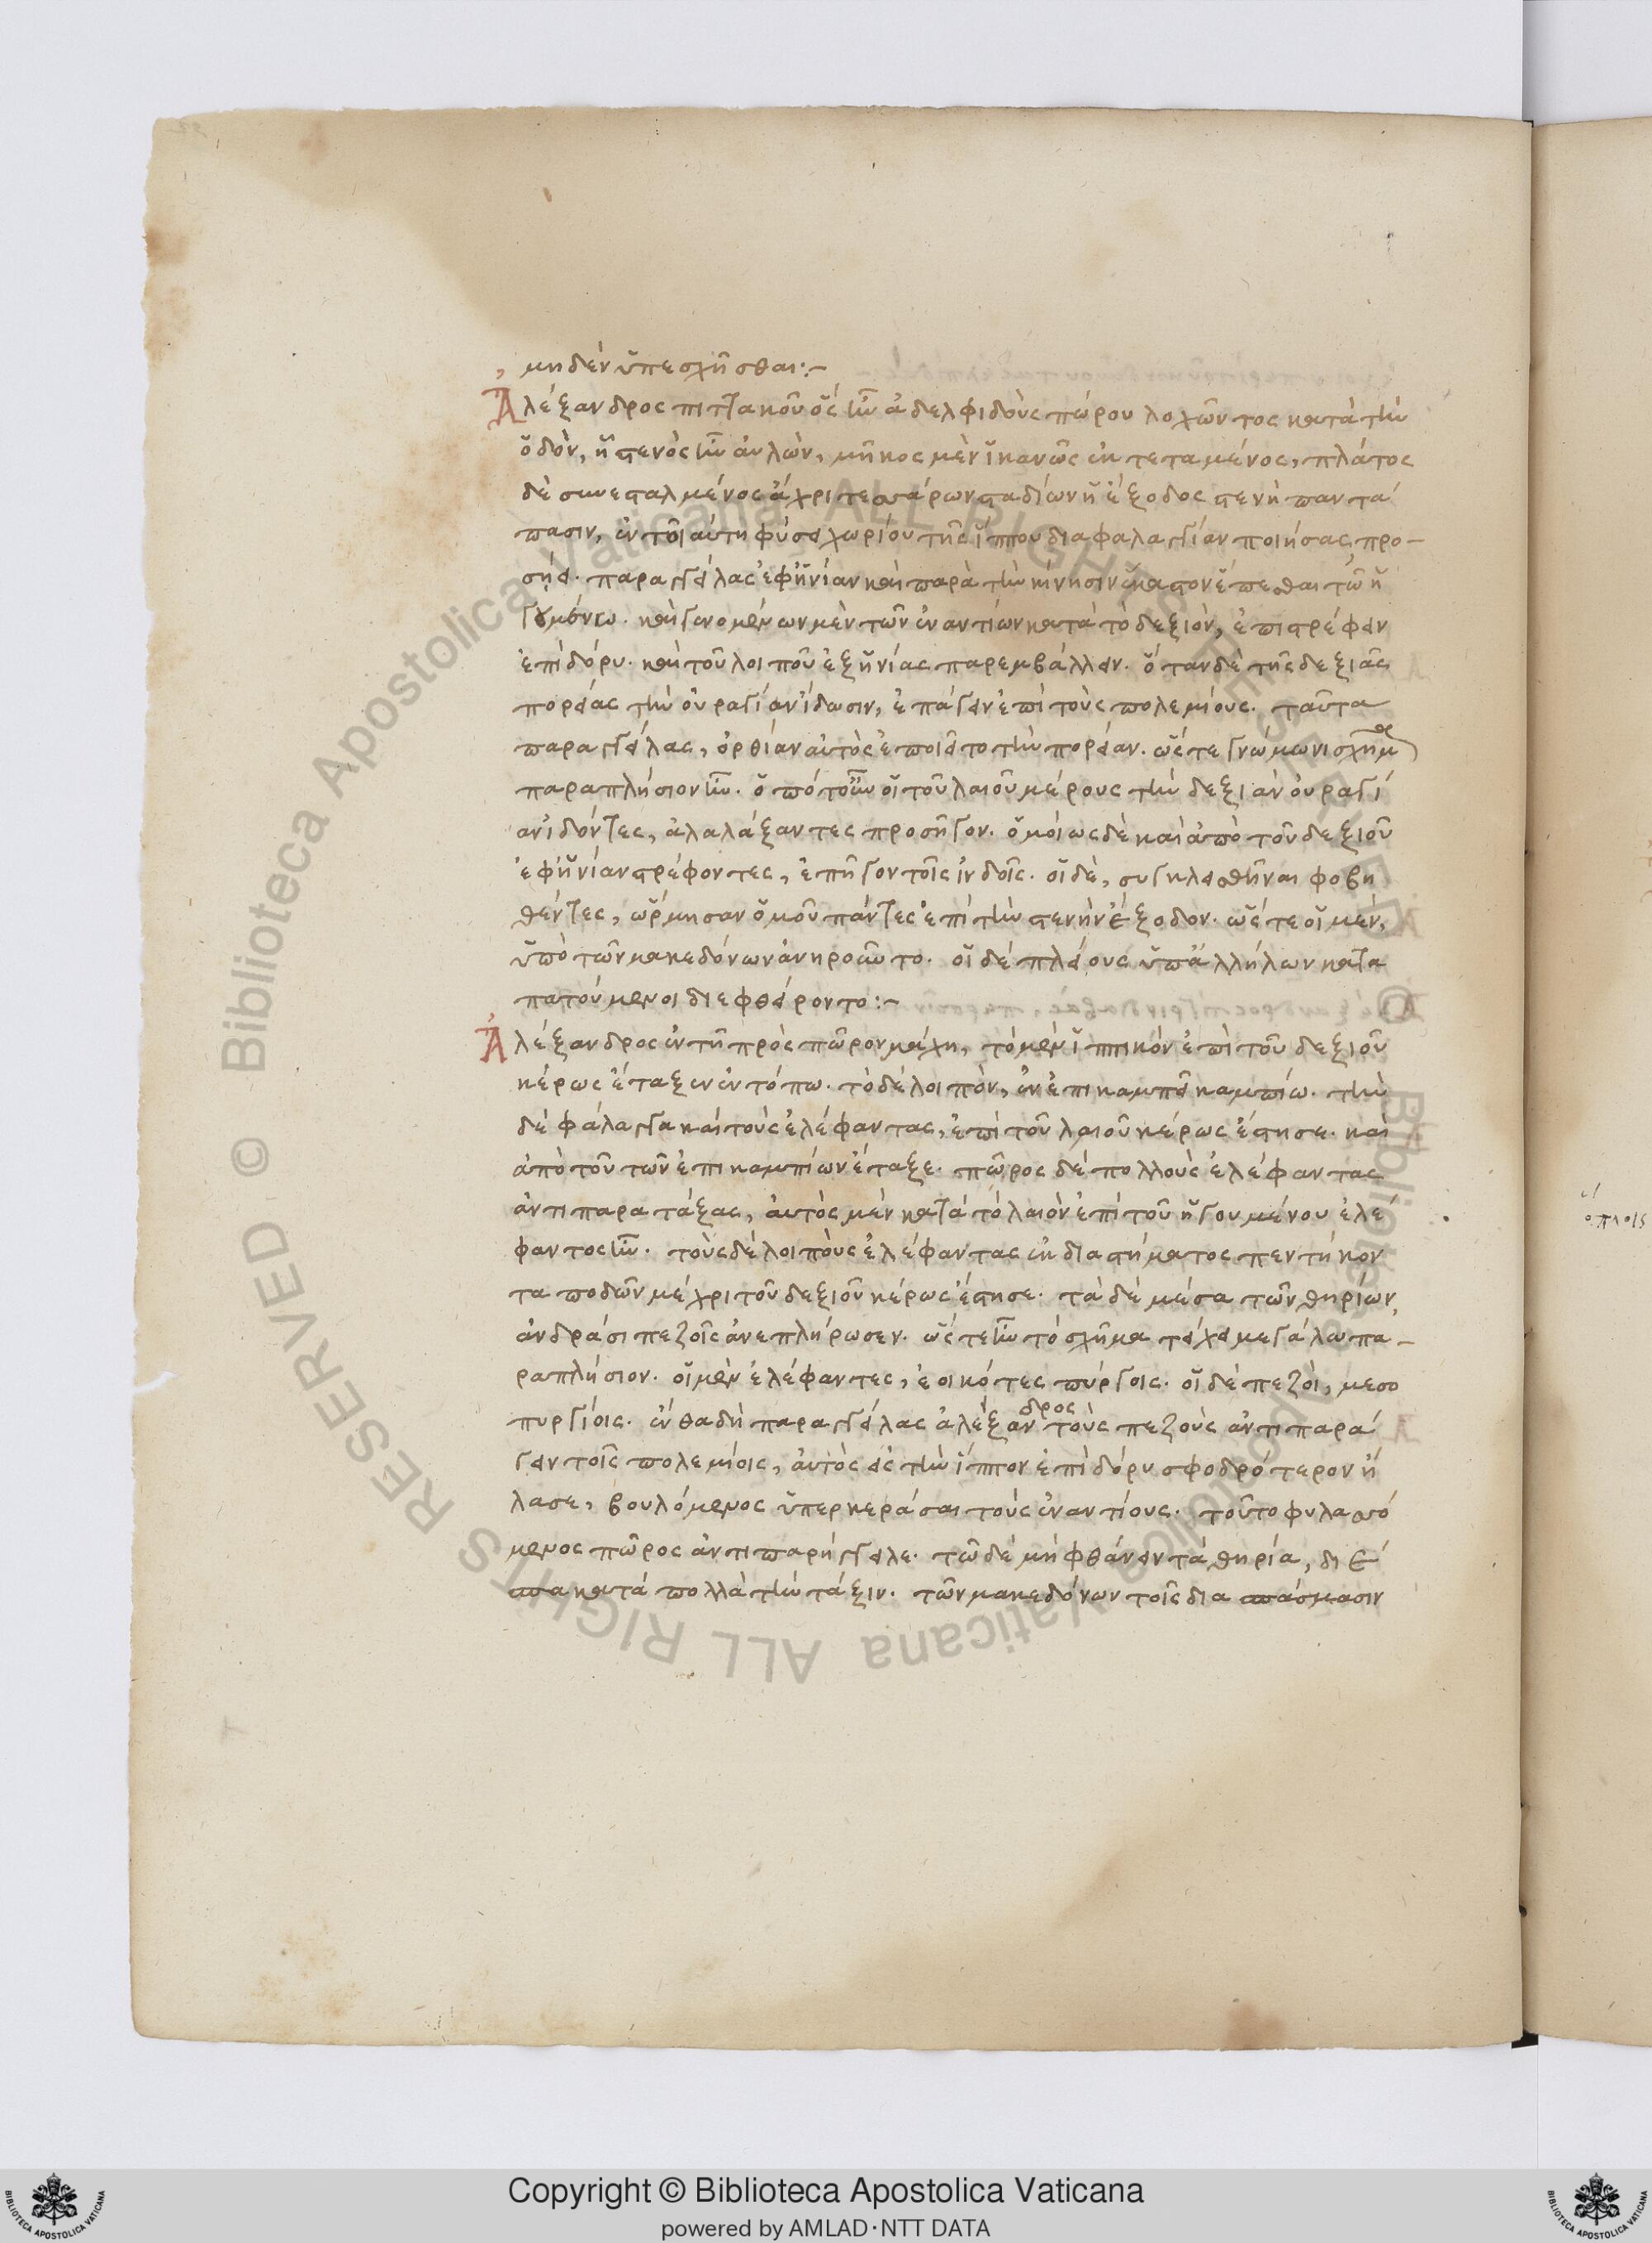 μηδὲν ὑπεσχῆσθαι:~
Ἀλέξανδρος πιττακοῦ ὃς ἦν ἀδελφιδοῦς πώρου λοχῶντος κατὰ τὴν
ὁδὸν, ἣ στενὸς ἦν αὐλὼν, μῆκος μὲν ἱκανῶς ἐκτεταμένος, πλάτος
δὲ συνεσταλμένος ἄχρι τεσσάρων σταδίων ἡ ἔξοδος στενὴ παντά
πασιν, ἐν τοιαύτη φύσει χωρίου τῆς ἵππου διαφαλαγγίαν ποιήσας προ-
σήει. παραγγείλας ἐφ' ἡνίαν καὶ παρὰ τὴν κίνησιν ἕκαστον ἕπεσθαι τῶ ἡ
γουμένω. καὶ γενομένων μὲν τῶν ἐναντίων κατὰ τὸ δεξιὸν, ἐπιστρέφειν
ἐπὶ δόρυ. καὶ τοῦ λοιποῦ ἐξ ἡνίας παρεμβάλλειν. ὅταν δὲ τῆς δεξιᾶς
πορείας τὴν οὐραγίαν ἴδωσιν, ἐπάγειν ἐπὶ τοὺς πολεμίους. ταῦτα
παραγγείλας, ὀρθίαν αὐτὸς ἐποιεῖτο τὴν πορείαν. ὥστε γνώμωνι σχῆμα
παραπλήσιον ἦν. ὁπότ' οὖν οἱ τοῦ λαιοῦ μέρους τὴν δεξιὰν οὐραγί
αν ἰδόντες, ἀλαλάξαντες προσῆγον. ὁμοίως δὲ καὶ ἀπὸ τοῦ δεξιοῦ
ἐφ' ἡνίαν στρέφοντες, ἐπῆγον τοῖς ἰνδοῖς. οἱ δὲ, συγκλεισθῆναι φοβη
θέντες, ὥρμησαν ὁμοῦ πάντες ἐπὶ τὴν στενὴν ἔξοδον. ὥστε οἱ μὲν,
ὑπὸ τῶν μακεδόνων ἀνηροῦντο. οἱ δὲ πλείους ὑπ' ἀλλήλων κατα
πατούμενοι διεφθείροντο:~
Ἀλέξανδρος ἐν τῆ πρὸς πῶρον μάχη, τὸ μὲν ἱππικὸν ἐπὶ τοῦ δεξιοῦ
κέρως ἔταξεν ἐν τόπω. τὸ δὲ λοιπὸν, ἐν ἐπικαμπεῖ καμπίω. τὴν
δὲ φάλαγγα καὶ τοὺς ἐλέφαντας, ἐπὶ τοῦ λαιοῦ κέρως ἔστησε. καὶ
ἀπὸ τοῦ τῶν ἐπικαμπίων ἔταξε. πῶρος δὲ πολλοὺς ἐλέφαντας
ἀντιπαρατάξας, αὐτὸς μὲν κατὰ τὸ λαιὸν ἐπὶ τοῦ ἡγουμένου ἐλέ
φαντος ἦν. τοὺς δὲ λοιποὺς ἐλέφαντας ἐκ διαστήματος πεντήκον
τα ποδῶν μέχρι τοῦ δεξιοῦ κέρως ἔστησε. τὰ δὲ μέσα τῶν θηρίων,
ἀνδράσι πεζοῖς ἀνεπλήρωσεν. ὥστε ἦν τὸ σχῆμα τείχει μεγάλω πα-
ραπλήσιον. οἱ μὲν ἐλέφαντες, ἐοικότες πύργοις. οἱ δὲ πεζοὶ, μεσο
πυργίοις. ἔνθα δὴ παραγγείλας ἀλέξανδρος τοὺς πεζοὺς ἀντιπαρά
γειν τοῖς πολεμίοις, αὐτὸς εἰς τὴν ἵππον ἐπὶ δόρυ σφοδρότερον ἤ
λασε, βουλόμενος ὑπερκεράσαι τοὺς ἐναντίους. τοῦτο φυλασσό
μενος πῶρος ἀντιπαρήγγειλε. τῶ δὲ μὴ φθάνειν τὰ θηρία, διέ
σπα κατὰ πολλὰ τὴν τάξιν. τῶν μακεδόνων τοῖς διασπάσμασιν
ὅπλοις
Copyright © Biblioteca Apostolica Vaticana
powered by AMLAD·NTT DATA
© Biblioteca Apostolica Vaticana ALL RIGHTS RESERVED
© Biblioteca Apostolica Vaticana ALL RIGHTS RESERVED
BIBLIOTECA APOSTOLICA VATICANA
BIBLIOTECA APOSTOLICA VATICANA